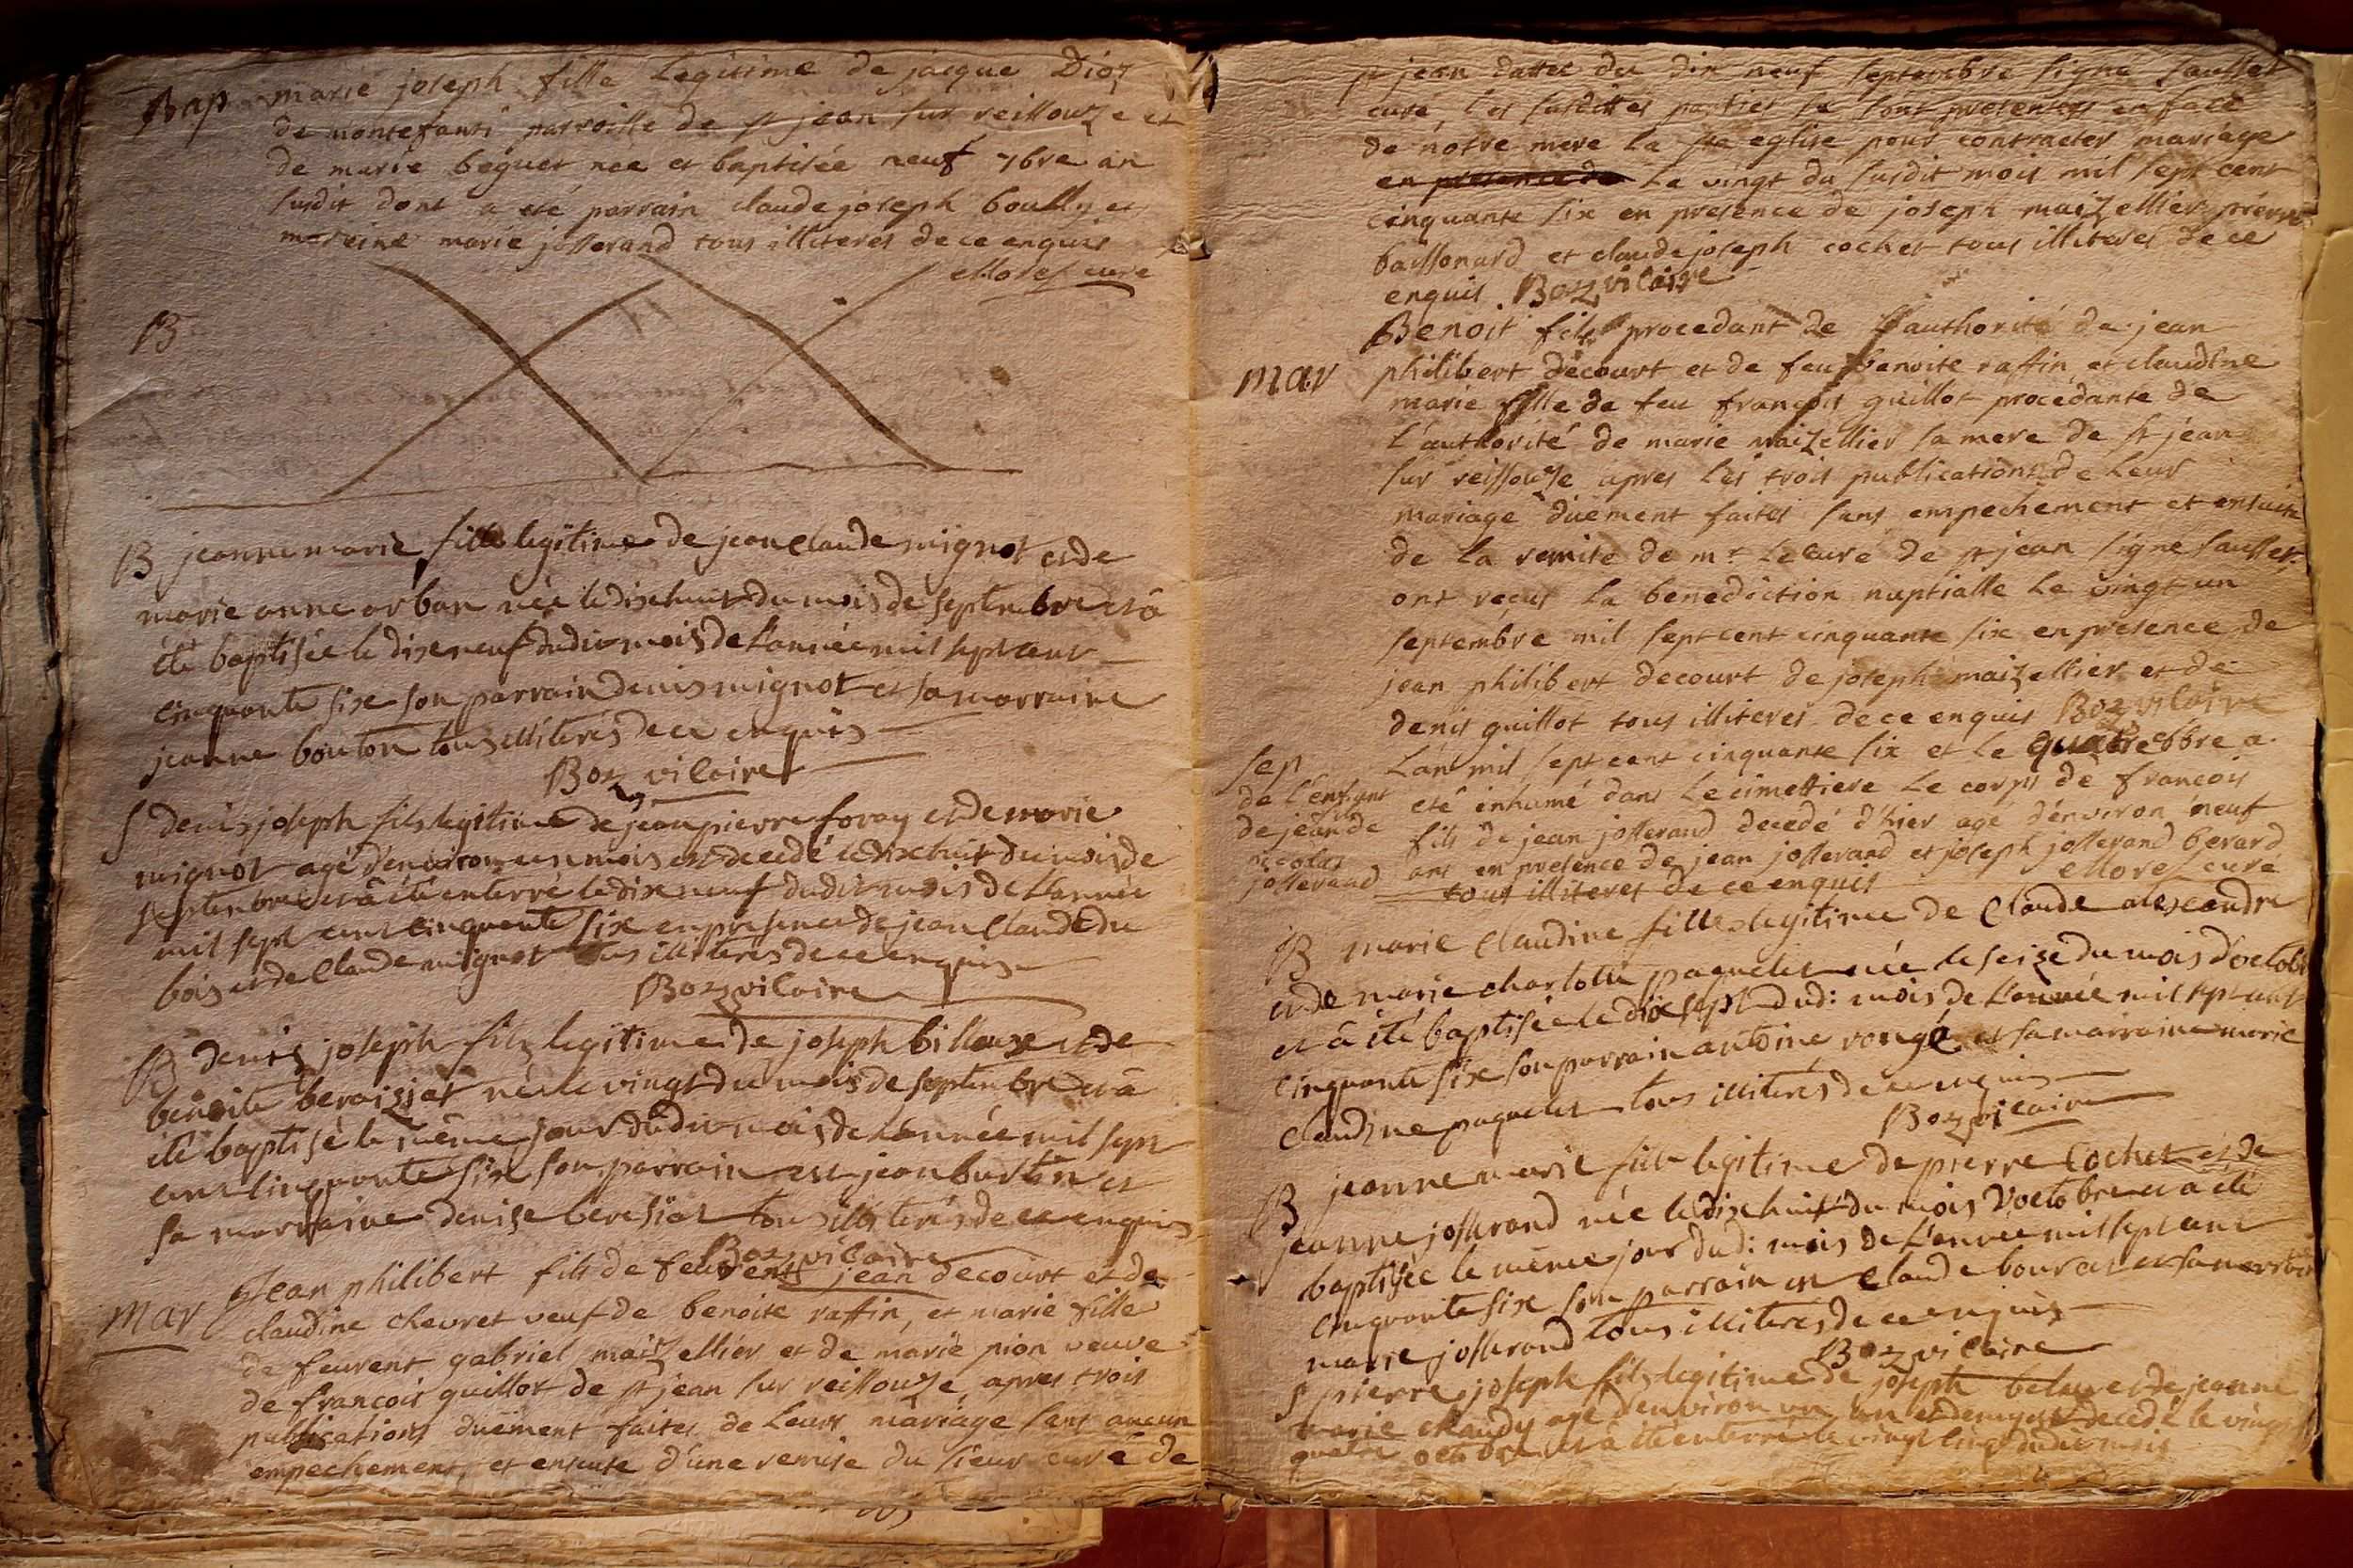 Bap marie joseph fille Legitime de jacque Dioz
de montefanti parroisse de st jean sur reissouze et
de marie beguet née et baptisée neuf 7bre an
susdit dont a eté parrain claude joseph boully et
mareine marie josserand tous illiteres de ce enquis
Morel curé
B
B jeanne marie fille legitime de jean claude mignot et de
marie anne arban née le dixehuit du mois de septembre et â
été baptisée le dixeneuf dudit mois de L'année mil sept cent
cinquante six son parrain denis mignot et sa marraine
jeanne bouton tous illiterés de ce enquis
Boz vicaire
S denis joseph fils legitime de jean pierre foray et de marie
mignot agé d'environ un mois est decedé le dixhuit du mois de
septembre et â été enterré le dixneuf dudit mois de L'année
mil sept cent cinquante six en presence de jean claude du
bois et de claude mignot tous illiterés de ce enquis
Boz vicaire
B denis joseph fils legitime de joseph billoux et de
benoite beraiziat né le vingt du mois de septembre et â
été baptisé le même jour dudit mois de L'année mil sept
cent cinquante six son parrain est jean burtin et
sa marraine denise beresiat tous illiterés de ce enquis
Boz vicaire
mar Jean philibert fils de feurent jean decourt et de
claudine chevret veuf de benoite raffin, et marie fille
de feurent gabriel maizellier et de marie pion veuve
de francois guillot de st jean sur reissouze, apres trois
publications duëment faites de Leurs mariage sans aucun
empechement, et ensuite d'une remise du sieur curé de
st jean dattée du dix neuf septembre signé sausset
curé, Les susdittes parties se sont presentées en face
de notre mere La ste eglise pour contracter mariage
en presence de Le vingt du susdit mois mil sept cent
cinquante six en presence de joseph maizellier pierre
baissonard et claude joseph cochet tous illiteres de ce
enquis. Boz vicaire
mar Benoit fils procedant de L'authorité de jean
philibert decourt et de feu benoite raffin, et claudine
marie fille de feu françois guillot procedante de
L'authorité de marie maizellier sa mere de st jean
sur reissouze apres Les trois publications de Leur
mariage düement faites sans empechement et ensuite
de La remise de mr Le curé de st jean signe sausset
ont reçus La benediction nuptialle Le vingt un
septembre mil sept cent cinquante six en presence de
jean philibert decourt de joseph maizellier et de
denis guillot tous illiteres de ce enquis Boz vicaire
sep L'an mil sept cent cinquante six et Le quatre 8bre a
de l'enfant eté inhumé dans Le cimettiere Le corps de francois
de jean de fils de jean josserand decedé d'hier agé d'environ neuf
nicolas ans en presence de jean josserand et joseph josserand berard
josserand tous illiteres de ce enquis Morel curé
B marie claudine fille legitime de claude alexandre
et de marie charlotte paquelet née le seize du mois d'octobre
et â été baptisée le dix sept dud: mois de L'année mil sept cent
cinquante six son parrain antoine rongé et sa marraine marie
claudine paquelet tous illiterés de ce enquis
Boz vicaire
B jeanne marie fille legitime de pierre Cochet et de
jeanne josserand née le dixhuit du mois d'octobre et a été
baptisée le même jour dud: mois de L'année mil sept cent
cinquante six son parrain est claude bouras et sa marraine
marie josserand tous illiterés de ce enquis
Boz vicaire
S pierre joseph fils legitime de joseph et de jeanne
marie chaudy agé d'environ un an et demy est decedé le vingt
quatre octobre et â été enterré le vingt cinq dudit mois